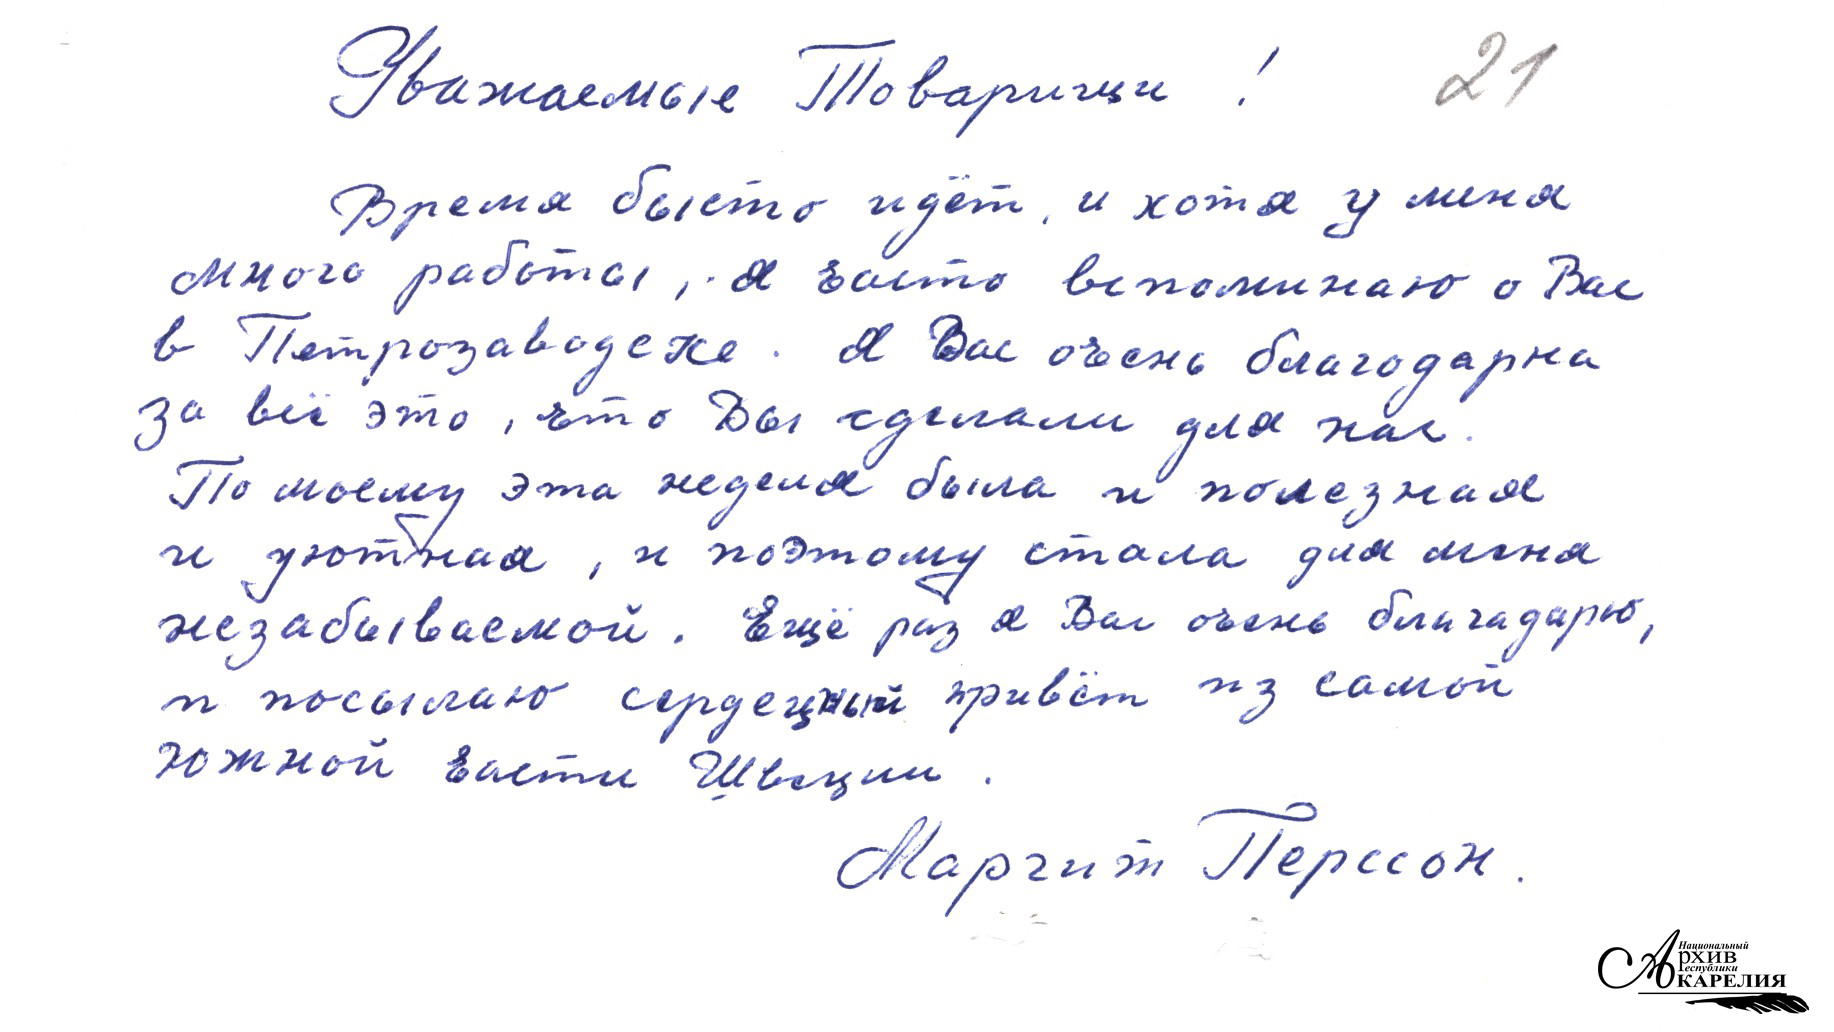 Уважаемые Товарищи !
21
Время бысто идёт, и хотя у меня
много работы, я часто вспоминаю о Вас
в Петрозаводске. Я Вас очень благодарна
за всё это, что Вы сделали для нас.
По моему эта неделя была и полезная
и уютная, и поэтому стала для меня
незабываемой. Ещё раз я Вас очень благадарю,
и посылаю сердецный привёт из самой
южной части Швеции.
Маргит Перссон.
Национальный
Архив
Республики
Карелия